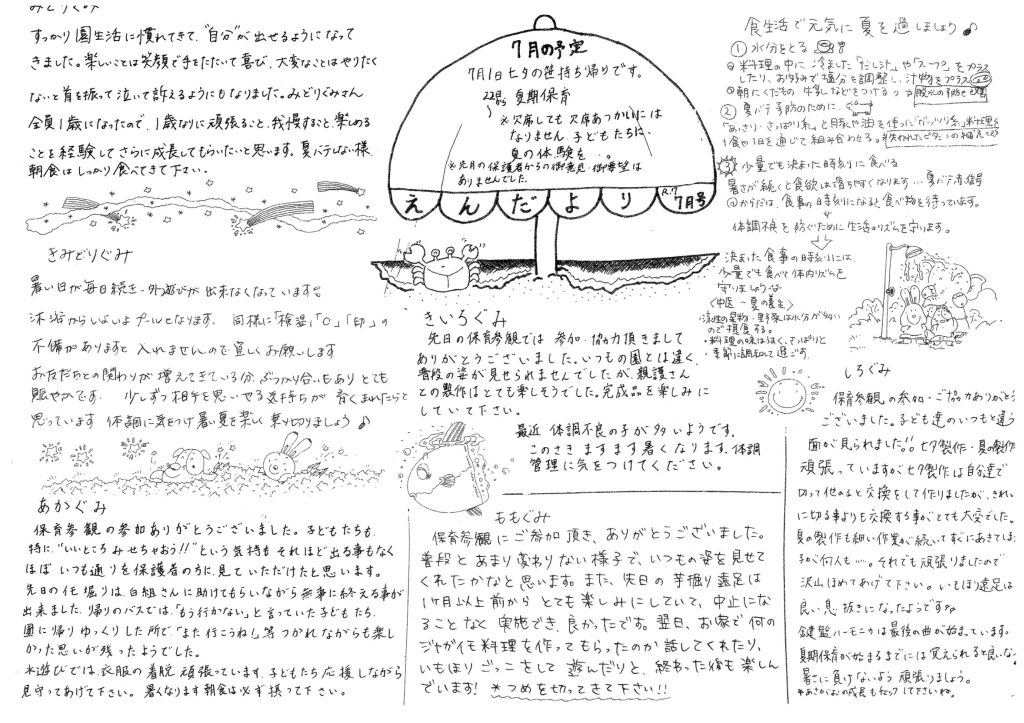 みどりぐみ
すっかり園生活に慣れてきて、"自分"が出せるようになって
きました。楽しいことは笑顔で手をたたいて喜び、大変なことはやりたく
ないと首を振って泣いて訴えるようにもなりました。みどりぐみさん
全員1歳になったので、1歳なりに頑張ること、我慢すること、楽しめる
ことを経験してさらに成長してもらいたいと思います。夏バテしない様、
朝食はしっかり食べてきて下さい。
きみどりぐみ
暑い日が毎日続き、外遊びが出来なくなっています。
沐浴からいよいよプールとなります。同様に「検温」「○」「印」の
不備がありますと入れませんので宜しくお願いします
お友だちとの関わりが増えてきている分、ぶつかり合いもあり とても
賑やかです。少しずつ相手を思いやる気持ちが育くまれたらと
思っています 体調に気をつけ暑い夏を楽しく乗り切りましょう♪
あかぐみ
保育参観の参加ありがとうございました。子どもたちも、
特に、"いいところみせちゃおう!!"という気持もそれほど出る事もなく
ほぼいつも通りを保護者の方に見ていただけたと思います。
先日のイモ堀りは、白組さんに助けてもらいながら無事に終える事が
出来ました。帰りのバスでは、「もう行かない」と言っていた子どもたち、
園に帰りゆっくりした所で、「また行こうね!」等、つかれながらも楽し
かった思いが残ったようでした。
水遊びでは、衣服の着脱、頑張っています。子どもたち応援しながら
見守ってあげて下さい。暑くなります朝食は必ず摂って下さい。
7月の予定
7月1日七夕の笹持ち帰りです。
22日 夏期保育
※欠席しても欠席あつかいには
なりません。子どもたちに、
夏の体験を…。
※先月の保護者からの御意見・御要望は
ありませんでした。
えんだより
R.7
7月号
きいろぐみ
先日の保育参観では 参加・協力頂きまして
ありがとうございました。いつもの園とは違く、
普段の姿が見せられませんでしたが、親護さん
との製作はとても楽しそうでした。完成品を楽しみに
していて下さい。
最近 体調不良の子が多いようです。
このさき ますます暑くなります。体調
管理に気をつけてください。
ももぐみ
保育参観にご参加頂き、ありがとうございました。
普段とあまり変わりない様子で、いつもの姿を見せて
くれたかなと思います。また、先日の芋掘り遠足は
1ヶ月以上前からとても楽しみにしていて、中止にな
ることなく実施でき、良かったです。翌日、お家で何の
ジャガイモ料理を作ってもらったのか話してくれたり、
いもほりごっこをして遊んだりと、終わった後も楽しん
でいます! ※つめを切ってきて下さい!!
食生活で元気に夏を過しましょう♪
① 水分をとる
料理の中に冷ました「だし汁」や「スープ」をプラス
したり、お好みで塩分を調整し、汁物をプラス
朝にくだもの、牛乳などをつける
脱水の予防に
② 夏バテ予防のために
「あっさり・さっぱり系」と豚や油を使った「ガッツリ系」料理を
1食や1日を通じて組み合わせる。
③ 少量でも決まった時刻に食べる
暑さが続くと食欲は落ちやすくなります…夏バテ赤信号
からだは、食事の時刻になると食べ物を待っています。
体調不良を防ぐために生活のリズムを守ります。
決まった食事の時刻には、
少量でも食べて体内リズムを
守りましょうな
〈中医・夏の養生〉
・涼性の果物・野菜は水分が多い
ので摂食する。
・料理の味はうすく、さっぱりと
・季節に調和して過ごす。
しろぐみ
保育参観の参加・ご協力ありがとう
ございました。子ども達のいつもと違う
面が見られました!! 七夕製作・夏の製作
頑張っていますが七夕製作は自分達で
切って他の子と交換をして作りましたが、きれい
に切る事よりも交換する事がとても大変でした。
夏の製作も細い作業が続いてすぐにあきてしまう
子が何人も…。それでも頑張りましたので
沢山ほめてあげて下さい。いもほり遠足は
良い息抜きになったようです
鍵盤ハーモニカは最後の曲が始まっています。
夏期保育が始まるまでには覚えられると良いな。
暑さに負けないよう頑張りましょう。
※あさがおの成長もチェックして下さいね。